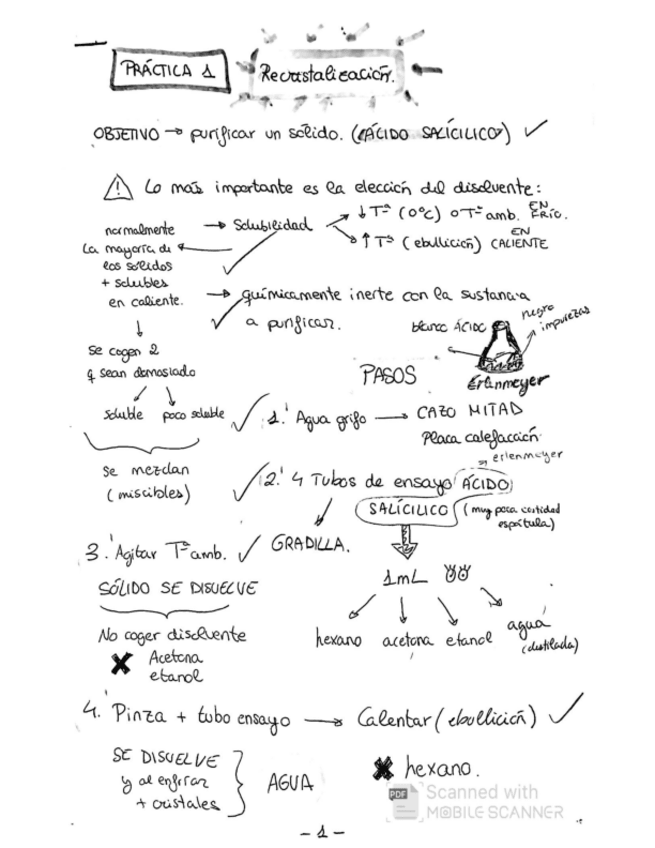 PRÁCTICA 1
Recristalización.
OBJETIVO → purificar un sólido. (ÁCIDO SALÍCILICO) ✓
⚠ Lo más importante es la elección del disolvente:
→ Solubilidad
↓ Tª (0ºC) o Tª amb. EN FRÍO.
↑ Tª (ebullición) EN CALIENTE
normalmente
la mayoría de
los sólidos
+ solubles
en caliente.
→ químicamente inerte con la sustancia
✓ a purificar.
se cogen 2
q sean demasiado
soluble poco soluble
se mezclan
(miscibles)
blanco ÁCIDO
negro
impurezas
Erlenmeyer
PASOS
✓ 1. Agua grifo → CAZO MITAD
Placa calefacción
→ erlenmeyer
✓ 2. 4 Tubos de ensayo ÁCIDO
SALÍCILICO (muy poca cantidad
espátula)
GRADILLA.
1mL
hexano acetona etanol agua
(destilada)
3. Agitar Tª amb. ✓
SÓLIDO SE DISUELVE
No coger disolvente
✗ Acetona
etanol
4. Pinza + tubo ensayo → Calentar (ebullición) ✓
SE DISUELVE
y al enfriar
+ cristales
AGUA
✗ hexano.
PDF Scanned with
MOBILE SCANNER
- 1 -